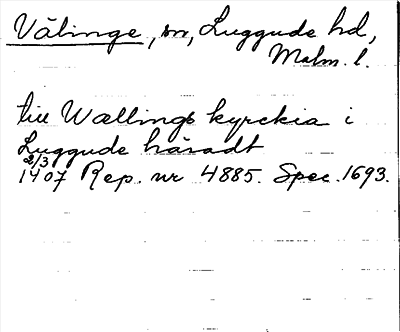 Välinge, sn, Luggude hd,
Malm. l.
till Wællings kyrckia i
Luggude häradt
2/3
1407 Rep. nr 4885. Spec. 1693.